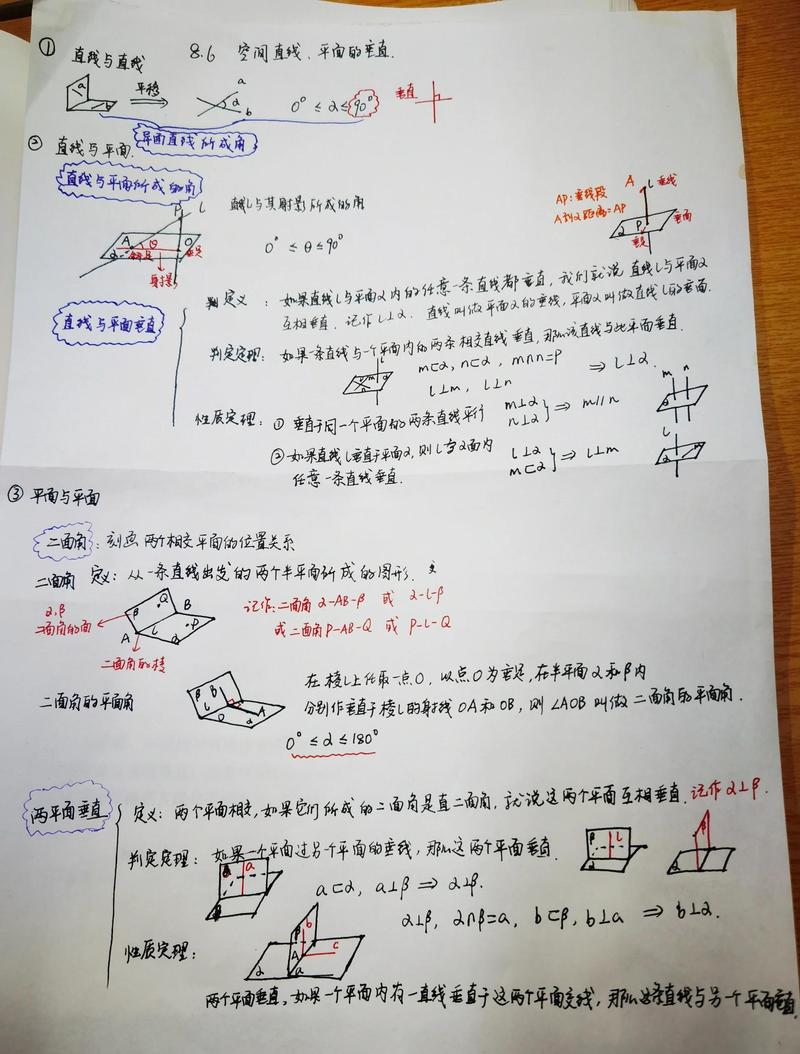 8.6 空间直线、平面的垂直.
① 直线与直线
a b 平移 ⇒ a α b 0° ≤ α ≤ 90° 垂直
异面直线所成角
② 直线与平面.
直线与平面所成的角
直线l与其射影所成的角
0° ≤ θ ≤ 90°
P l A θ O α 斜足 垂足
射影
AP:垂线段
A到α距离=AP
A l 垂线 P α 垂面
垂足
直线与平面垂直
定义: 如果直线l与平面α内的任意一条直线都垂直,我们就说 直线l与平面α
互相垂直. 记作 l⊥α. 直线l叫做平面α的垂线,平面α叫做直线l的垂面.
判定定理: 如果一条直线与一个平面内的两条相交直线垂直,那么该直线与此平面垂直.
m⊂α, n⊂α, m∩n=P
l⊥m, l⊥n ⇒ l⊥α.
性质定理: ① 垂直于同一个平面的两条直线平行 m⊥α n⊥α } ⇒ m∥n m n α
② 如果直线l垂直于平面α,则l与α面内 l⊥α m⊂α } ⇒ l⊥m l α
任意一条直线垂直.
③ 平面与平面
二面角: 刻画两个相交平面的位置关系
二面角 定义: 从一条直线出发的两个半平面所成的图形.
α,β
二面角的面
β Q B A l α P
二面角的棱
记作: 二面角 α-AB-β 或 α-l-β
或二面角 P-AB-Q 或 P-l-Q
二面角的平面角
β B l O A α
在棱l上任取一点O, 以点O为垂足,在半平面α和β内
分别作垂直于棱l的射线OA和OB, 则∠AOB叫做二面角的平面角.
0° ≤ α ≤ 180°
两平面垂直
定义: 两个平面相交,如果它们所成的二面角是直二面角,就说这两个平面互相垂直. 记作α⊥β.
判定定理: 如果一个平面过另一个平面的垂线,那么这两个平面垂直.
β l α
a⊂α, a⊥β ⇒ α⊥β.
α⊥β, α∩β=a, b⊂β, b⊥a ⇒ b⊥α.
性质定理:
β b A c α a
两个平面垂直,如果一个平面内有一直线垂直于这两个平面交线,那么这条直线与另一个平面垂直.